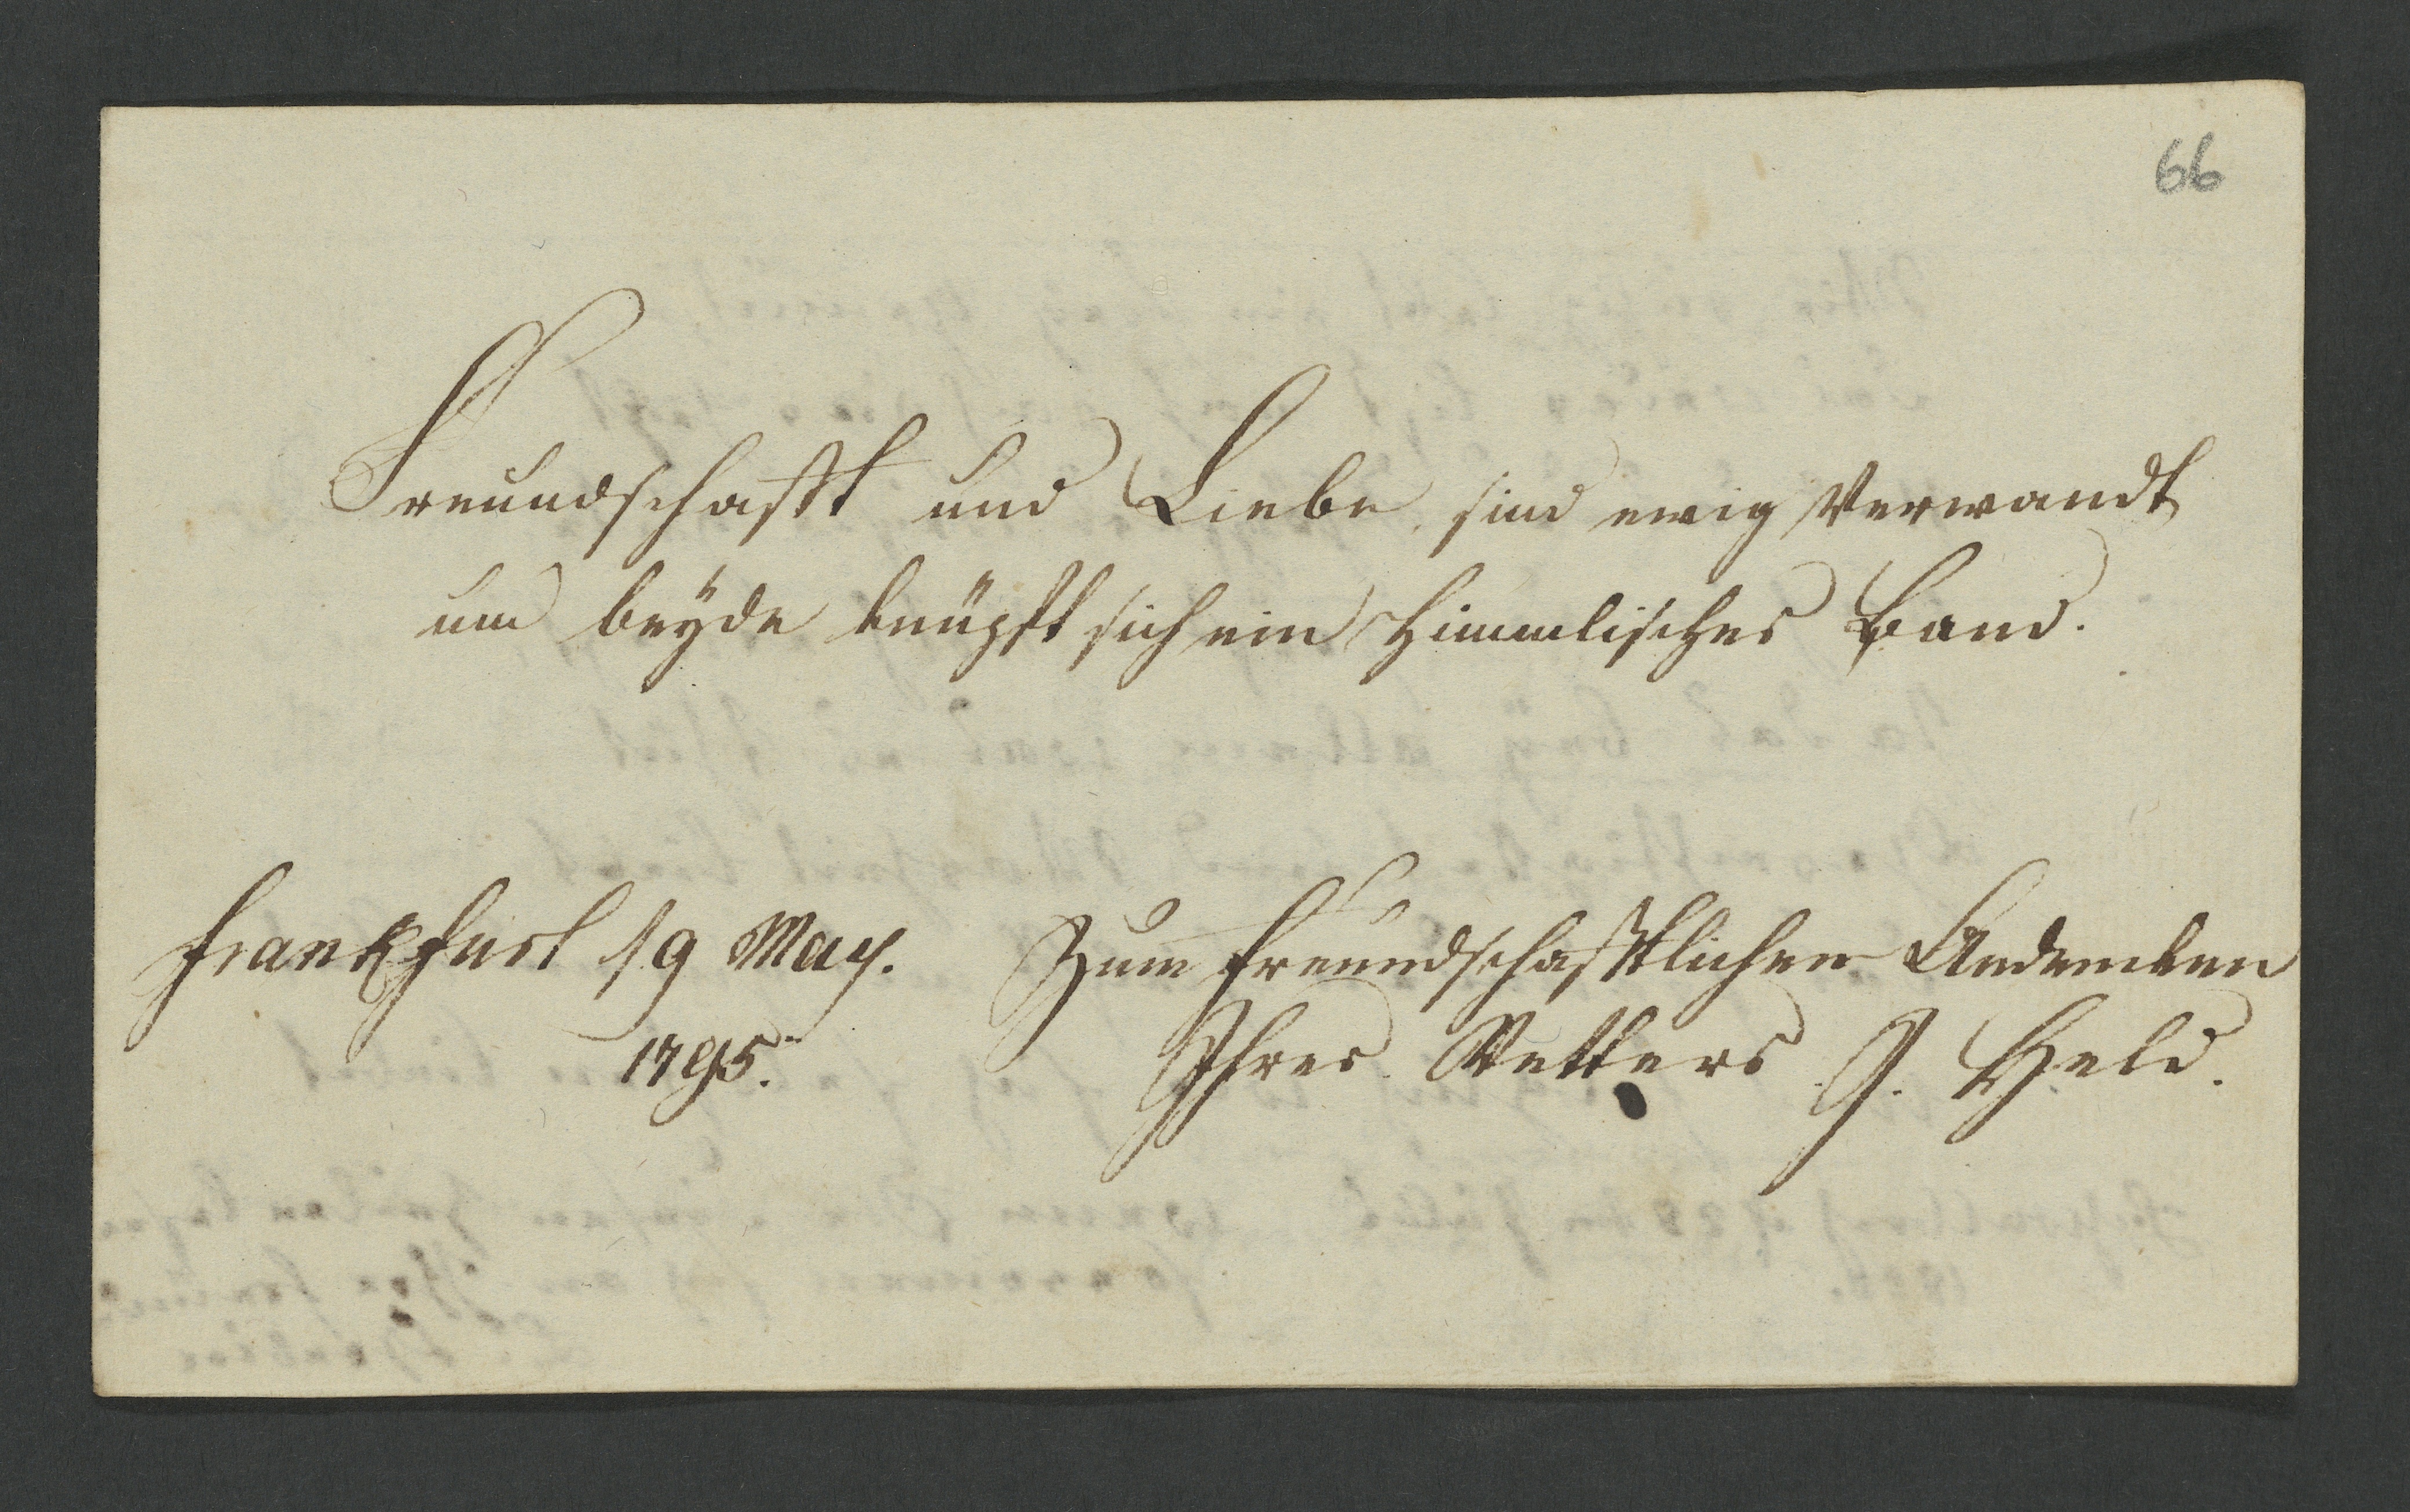 66
Freundschafft und Liebe sind ewig Verwandt
um beyde knüpft sich ein Himmlisches Band.
Frankfurt 19 May. Zum freundschafftlichen Andencken
1795. Ihres Vetters J. Held.